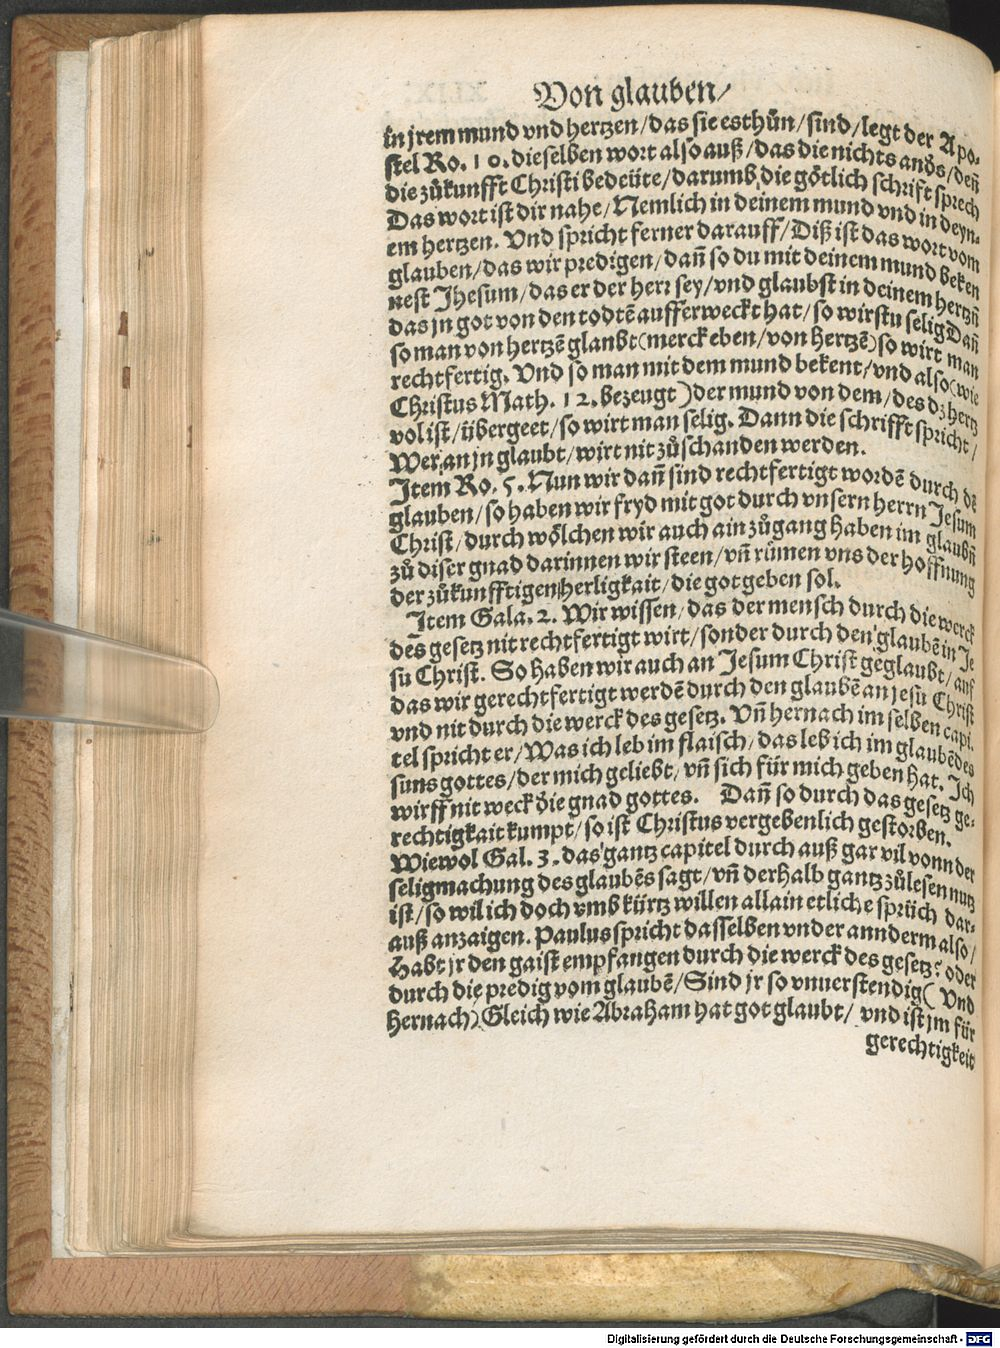 Von glauben/
in jrem mund vnd hertzen/das sie es thůn/sind/legt der Apo-
stel Ro. 10. dieselben wort also auß/das die nichts anďs/deñ
die zůkunfft Christi bedeüte/darumb die götlich schrift sprech
Das wort ist dir nahe/Nemlich in deinem mund vnd in deyn-
em hertzen. Vnd spricht ferner darauff/Diß ist das wort vom
glauben/das wir predigen/dañ so du mit deinem mund beken
nest Jhesum/das er der herr sey/vnd glaubst in deinem hertzñ
das jn got von den todtē aufferweckt hat/so wirstu selig Dañ
so man von hertzē glanbt(merck eben/von hertzē)so wirt man
rechtfertig. Vnd so man mit dem mund bekent/vnd also(wie
Christus Math. 12. bezeugt)der mund von dem/des dz hertz
vol ist/übergeet/so wirt man selig. Dann die schrifft spricht/
Wer an jn glaubt/wirt nit zůschanden werden.
Item Ro. 5. Nun wir dañ sind rechtfertigt wordē durch dē
glauben/so haben wir fryd mit got durch vnsern herrn Jesum
Christ/durch wölchen wir auch ain zůgang haben im glaubñ
zů diser gnad darinnen wir steen/vñ rümen vns der hoffnung
der zůkunfftigen herligkait/die got geben sol.
Item Gala. 2. Wir wissen/das der mensch durch die werck
des gesetz nit rechtfertigt wirt/sonder durch den glaubē in Je
sū Christ. So haben wir auch an Jesum Christ geglaubt/auf
das wir gerechtfertigt werdē durch den glaubē an jesū Christ
vnd nit durch die werck des gesetz. Vñ hernach im selben capi-
tel spricht er/Was ich leb im flaisch/das leb ich im glaubē des
suns gottes/der mich geliebt/vñ sich für mich geben hat. Ich
wirff nit weck die gnad gottes. Dañ so durch das gesetz ge-
rechtigkait kumpt/so ist Christus vergebenlich gestorben.
Wiewol Gal. 3. das gantz capitel durch auß gar vil vonn der
seligmachung des glaubēs sagt/vñ derhalb gantz zůlesen nutz
ist/so wil ich doch vmb kürtz willen allain etliche sprüch dar-
auß anzaigen. Paulus spricht dasselben vnder anndermalso/
Habt jr den gaist empfangen durch die werck des gesetz? oder
durch die predig vom glaubē/Sind jr so vnuerstendig(Vnd
hernach)Gleich wie Abraham hat got glaubt/ vnd ist jm für
gerechtigkeit
Digitalisierung gefördert durch die Deutsche Forschungsgemeinschaft - DFG